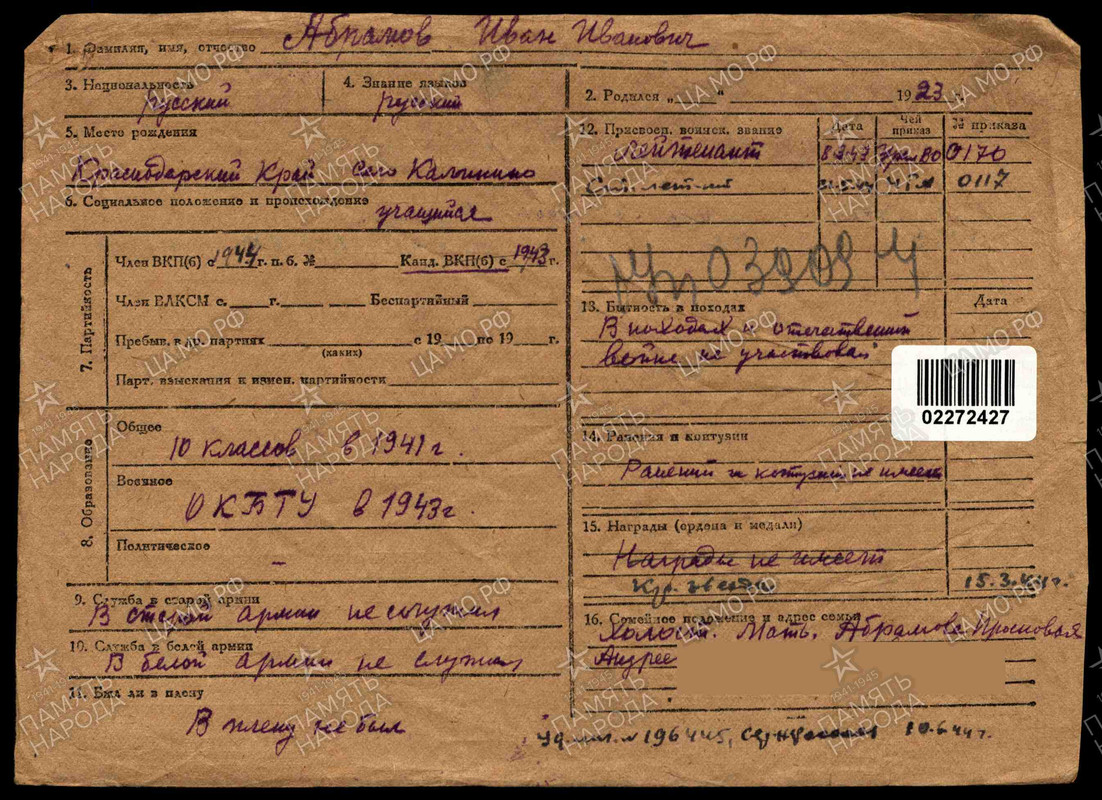 1. Фамилия, имя, отчество Абрамов Иван Иванович
3. Национальность русский
4. Знание языков русский
2. Родился „ “ 1923 г.
5. Место рождения
Краснодарский Край село Калинино
6. Социальное положение и происхождение учащийся
7. Партийность
Член ВКП(б) с 1944 г. п. б. № Канд. ВКП(б) с 1943 г.
Член ВЛКСМ с. г. Беспартийный
Пребыв. в др. партиях с 19 по 19 г.
(каких)
Парт. взыскания и измен. партийности
8. Образование
Общее
10 классов в 1941 г.
Военное
ОКБТУ в 1943 г.
Политическое
–
9. Служба в старой армии
В старой армии не служил
10. Служба в белой армии
В белой армии не служил
11. Был ли в плену
В плену не был
12. Присвоен. воинск. звание Дата Чей приказ № приказа
Лейтенант 0170
0117
03909
13. Бытность в походах Дата
В походах и отечественной
войне не участвовал
02272427
14. Ранения и контузии
Ранений и контузий не имеет
15. Награды (ордена и медали)
Награды не имеет
Кр. звезда 15.3.44 г.
16. Семейное положение и адрес семьи
Холост. Мать. Абрамова
Андрее
196445, 10.6.44 г.
ПАМЯТЬ НАРОДА
1941-1945
ЦАМО.РФ